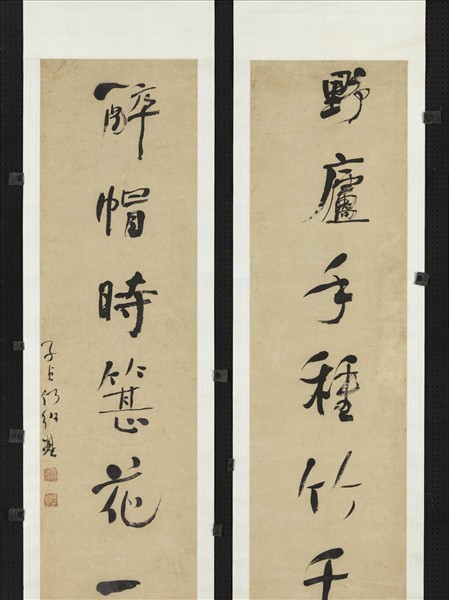 野廬手種竹千
醉帽時簪花一
子貞何紹基